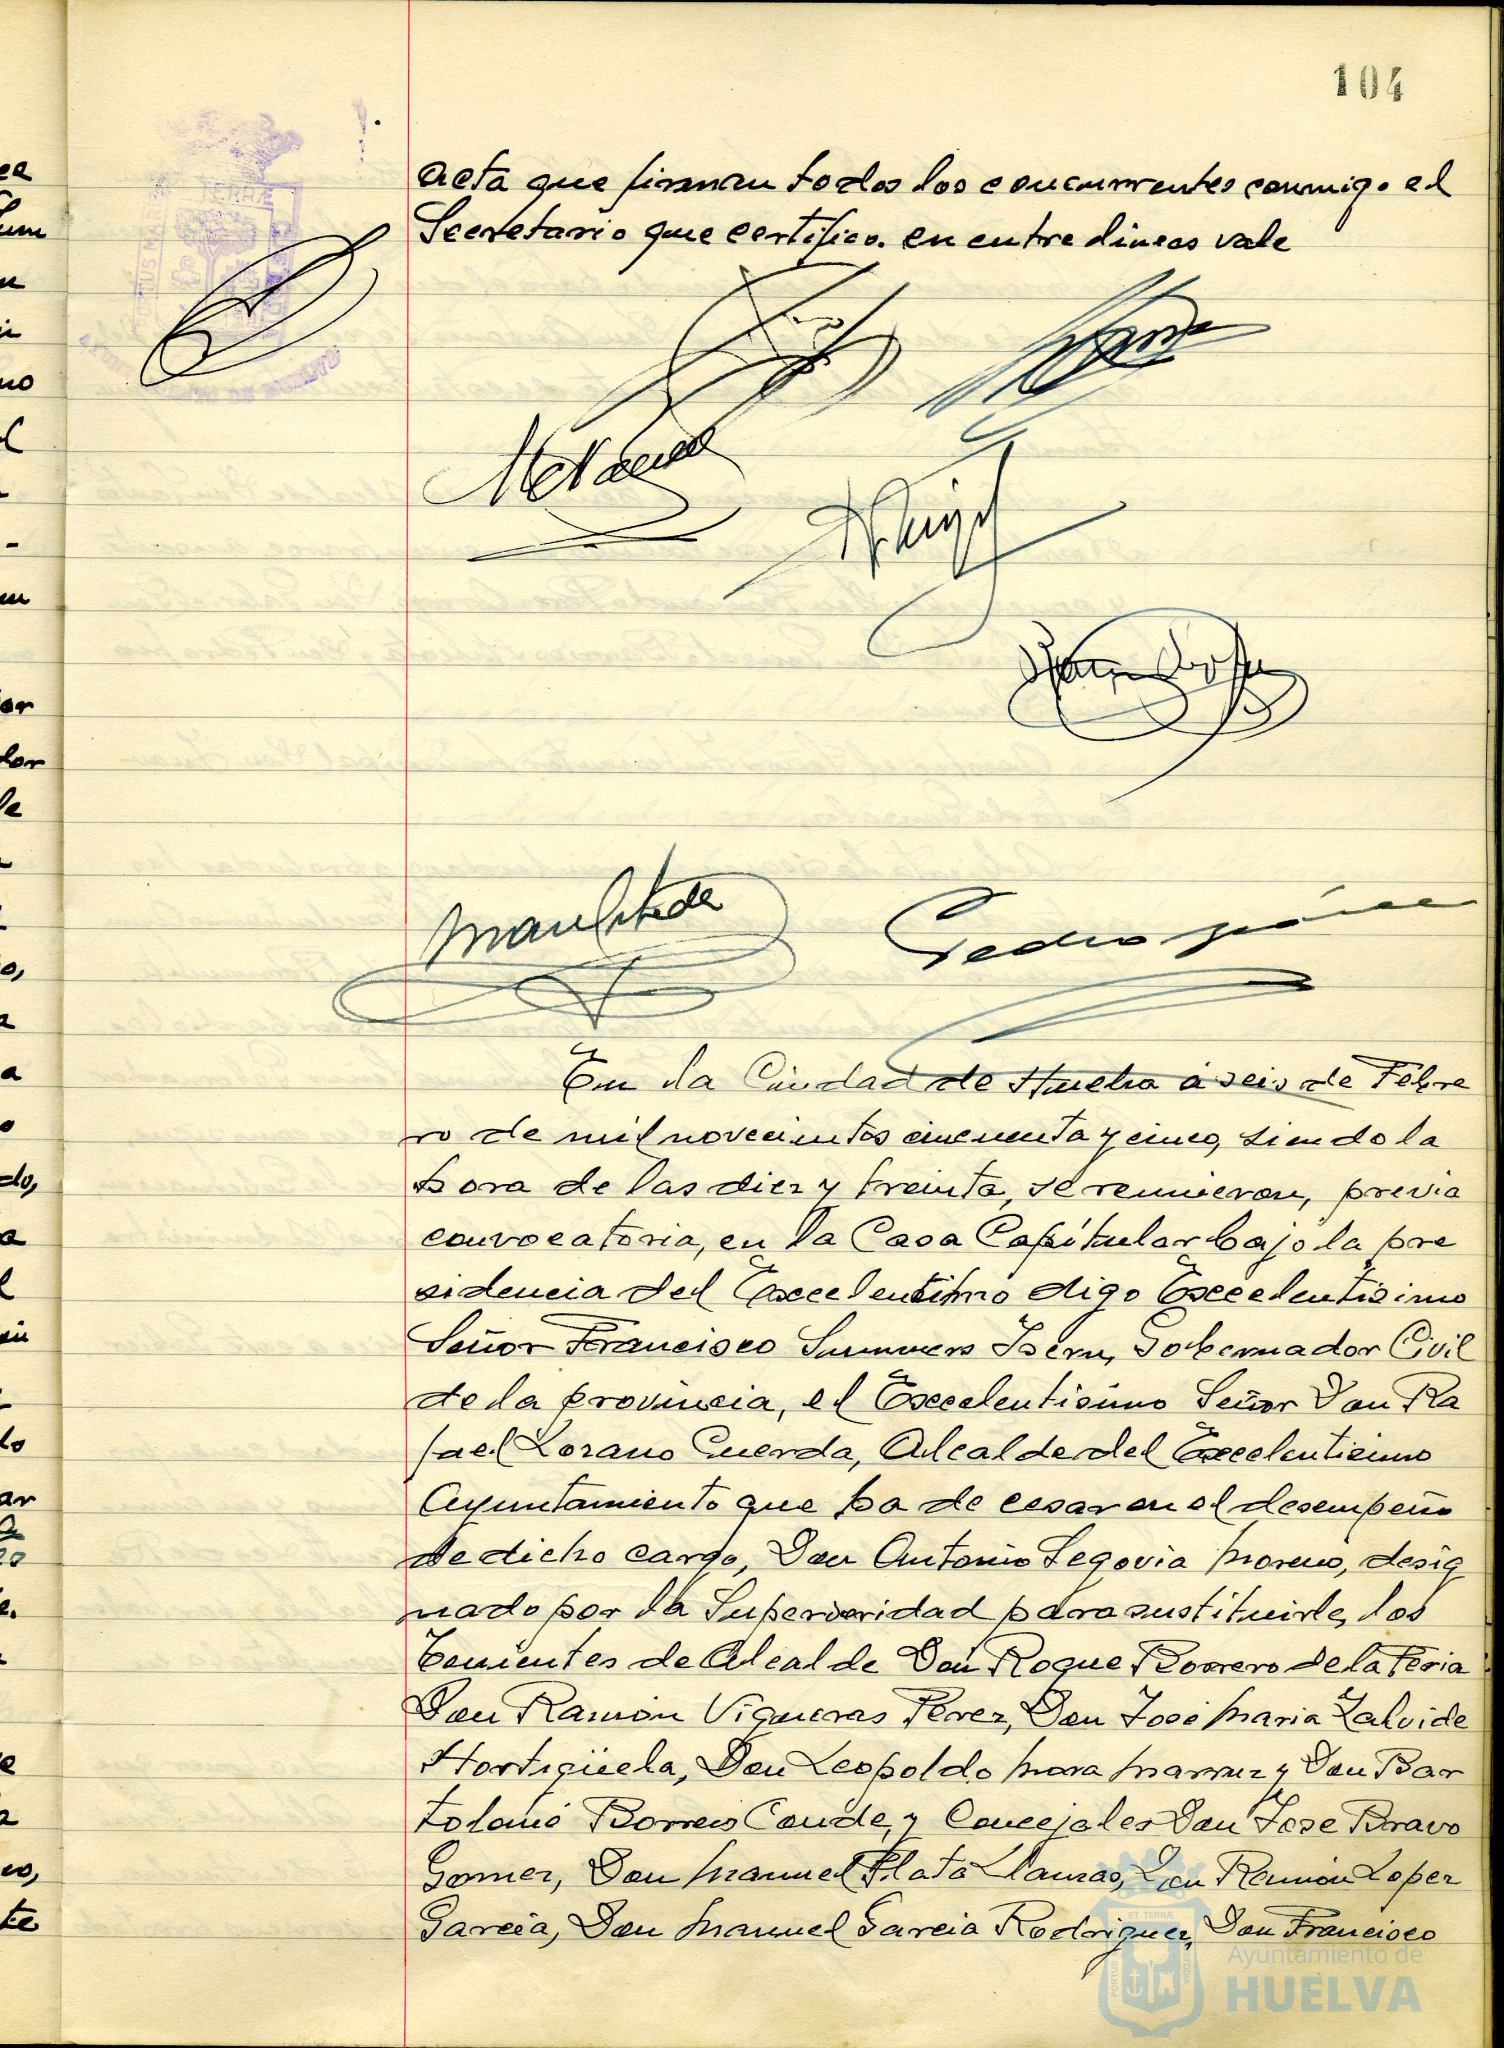 104
acta que firman todos los concurrentes conmigo el
Secretario que certifico. en entre lineas vale
Pedro
En la Ciudad de Huelva a seis de Febre
ro de mil novecientos cincuenta y cinco, siendo la
hora de las diez y treinta, se reunieron, previa
convocatoria, en la Casa Capitular bajo la pre
sidencia del Excelentimo digo Excelentisimo
Señor Francisco Summers Isern, Gobernador Civil
de la provincia, el Excelentisimo Señor Don Ra
fael Lozano Cuerda, Alcalde del Excelentisimo
Ayuntamiento que ha de cesar en el desempeño
de dicho cargo, Don Antonio Segovia Moreno, desig
nado por la Superioridad para sustituirle, los
Tenientes de Alcalde Don Roque Borrero de la Feria
Don Ramón Vigueras Pérez, Don José Maria Zalvide
Hortigüela, Don Leopoldo Mora y Don Bar
tolomé Borrero Conde, y Concejales Don Jose Bravo
Gomez, Don Manuel Plata Llanzas, Don Ramón Lopez
Garcia, Don Manuel Garcia Rodriguez, Don Francisco
Ayuntamiento de
HUELVA